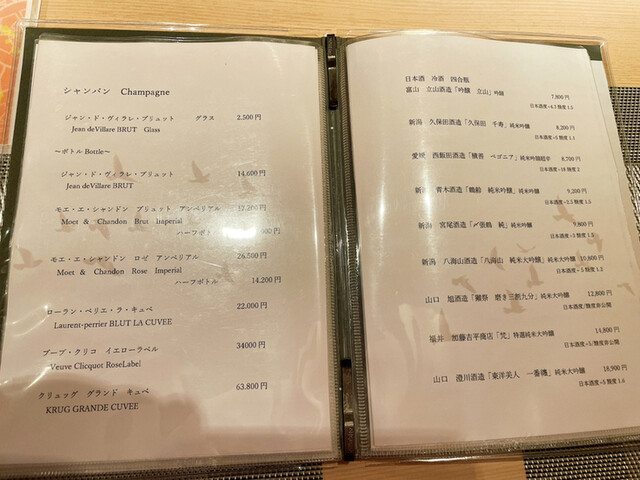 シャンパン Champagne
ジャン・ド・ヴィラレ・ブリュット グラス 2.500円
Jean deVillare BRUT Glass
～ボトル Bottle～
ジャン・ド・ヴィラレ・ブリュット 14.600円
Jean deVillare BRUT
モエ・エ・シャンドン ブリュット アンペリアル
Moet & Chandon Brut Imperial
ハーフボトル
モエ・エ・シャンドン ロゼ アンペリアル 26.500円
Moet & Chandon Rose Imperial
ハーフボトル 14.200円
ローラン・ペリエ・ラ・キュベ 22.000円
Laurent-perrier BLUT LA CUVEE
ブーブ・クリコ イエローラベル 34000円
Veuve Clicquot RoseLabel
クリュッグ グランド キュベ 63.800円
KRUG GRANDE CUVEE
日本酒 冷酒 四合瓶
富山 立山酒造「吟醸 立山」吟醸 7,800円
日本酒度+4.3 酸度 1.5
新潟 久保田酒造「久保田 千寿」純米吟醸 8,200円
日本酒度+5 酸度 1.1
愛媛 西飯田酒造「積善 ベゴニア」純米吟醸超辛 8,700円
日本酒度+18 酸度 2
新潟 青木酒造「鶴齢 純米吟醸」純米吟醸 9,200円
酸度 1.5
新潟 宮尾酒造「〆張鶴 純」純米吟醸 9,800円
日本酒度+3 酸度
新潟 八海山酒造「八海山 純米大吟醸」純米大吟醸 10,800円
日本酒度+5 酸度 1.2
山口 旭酒造「獺祭 磨き三割九分」純米大吟醸 12,800円
日本酒度/酸度非公開
福井 加藤吉平商店「梵」特選純米大吟醸 14,800円
日本酒度+5/酸度非公開
山口 澄川酒造「東洋美人 一番纏」純米大吟醸 18,900円
日本酒度+5 酸度 1.6